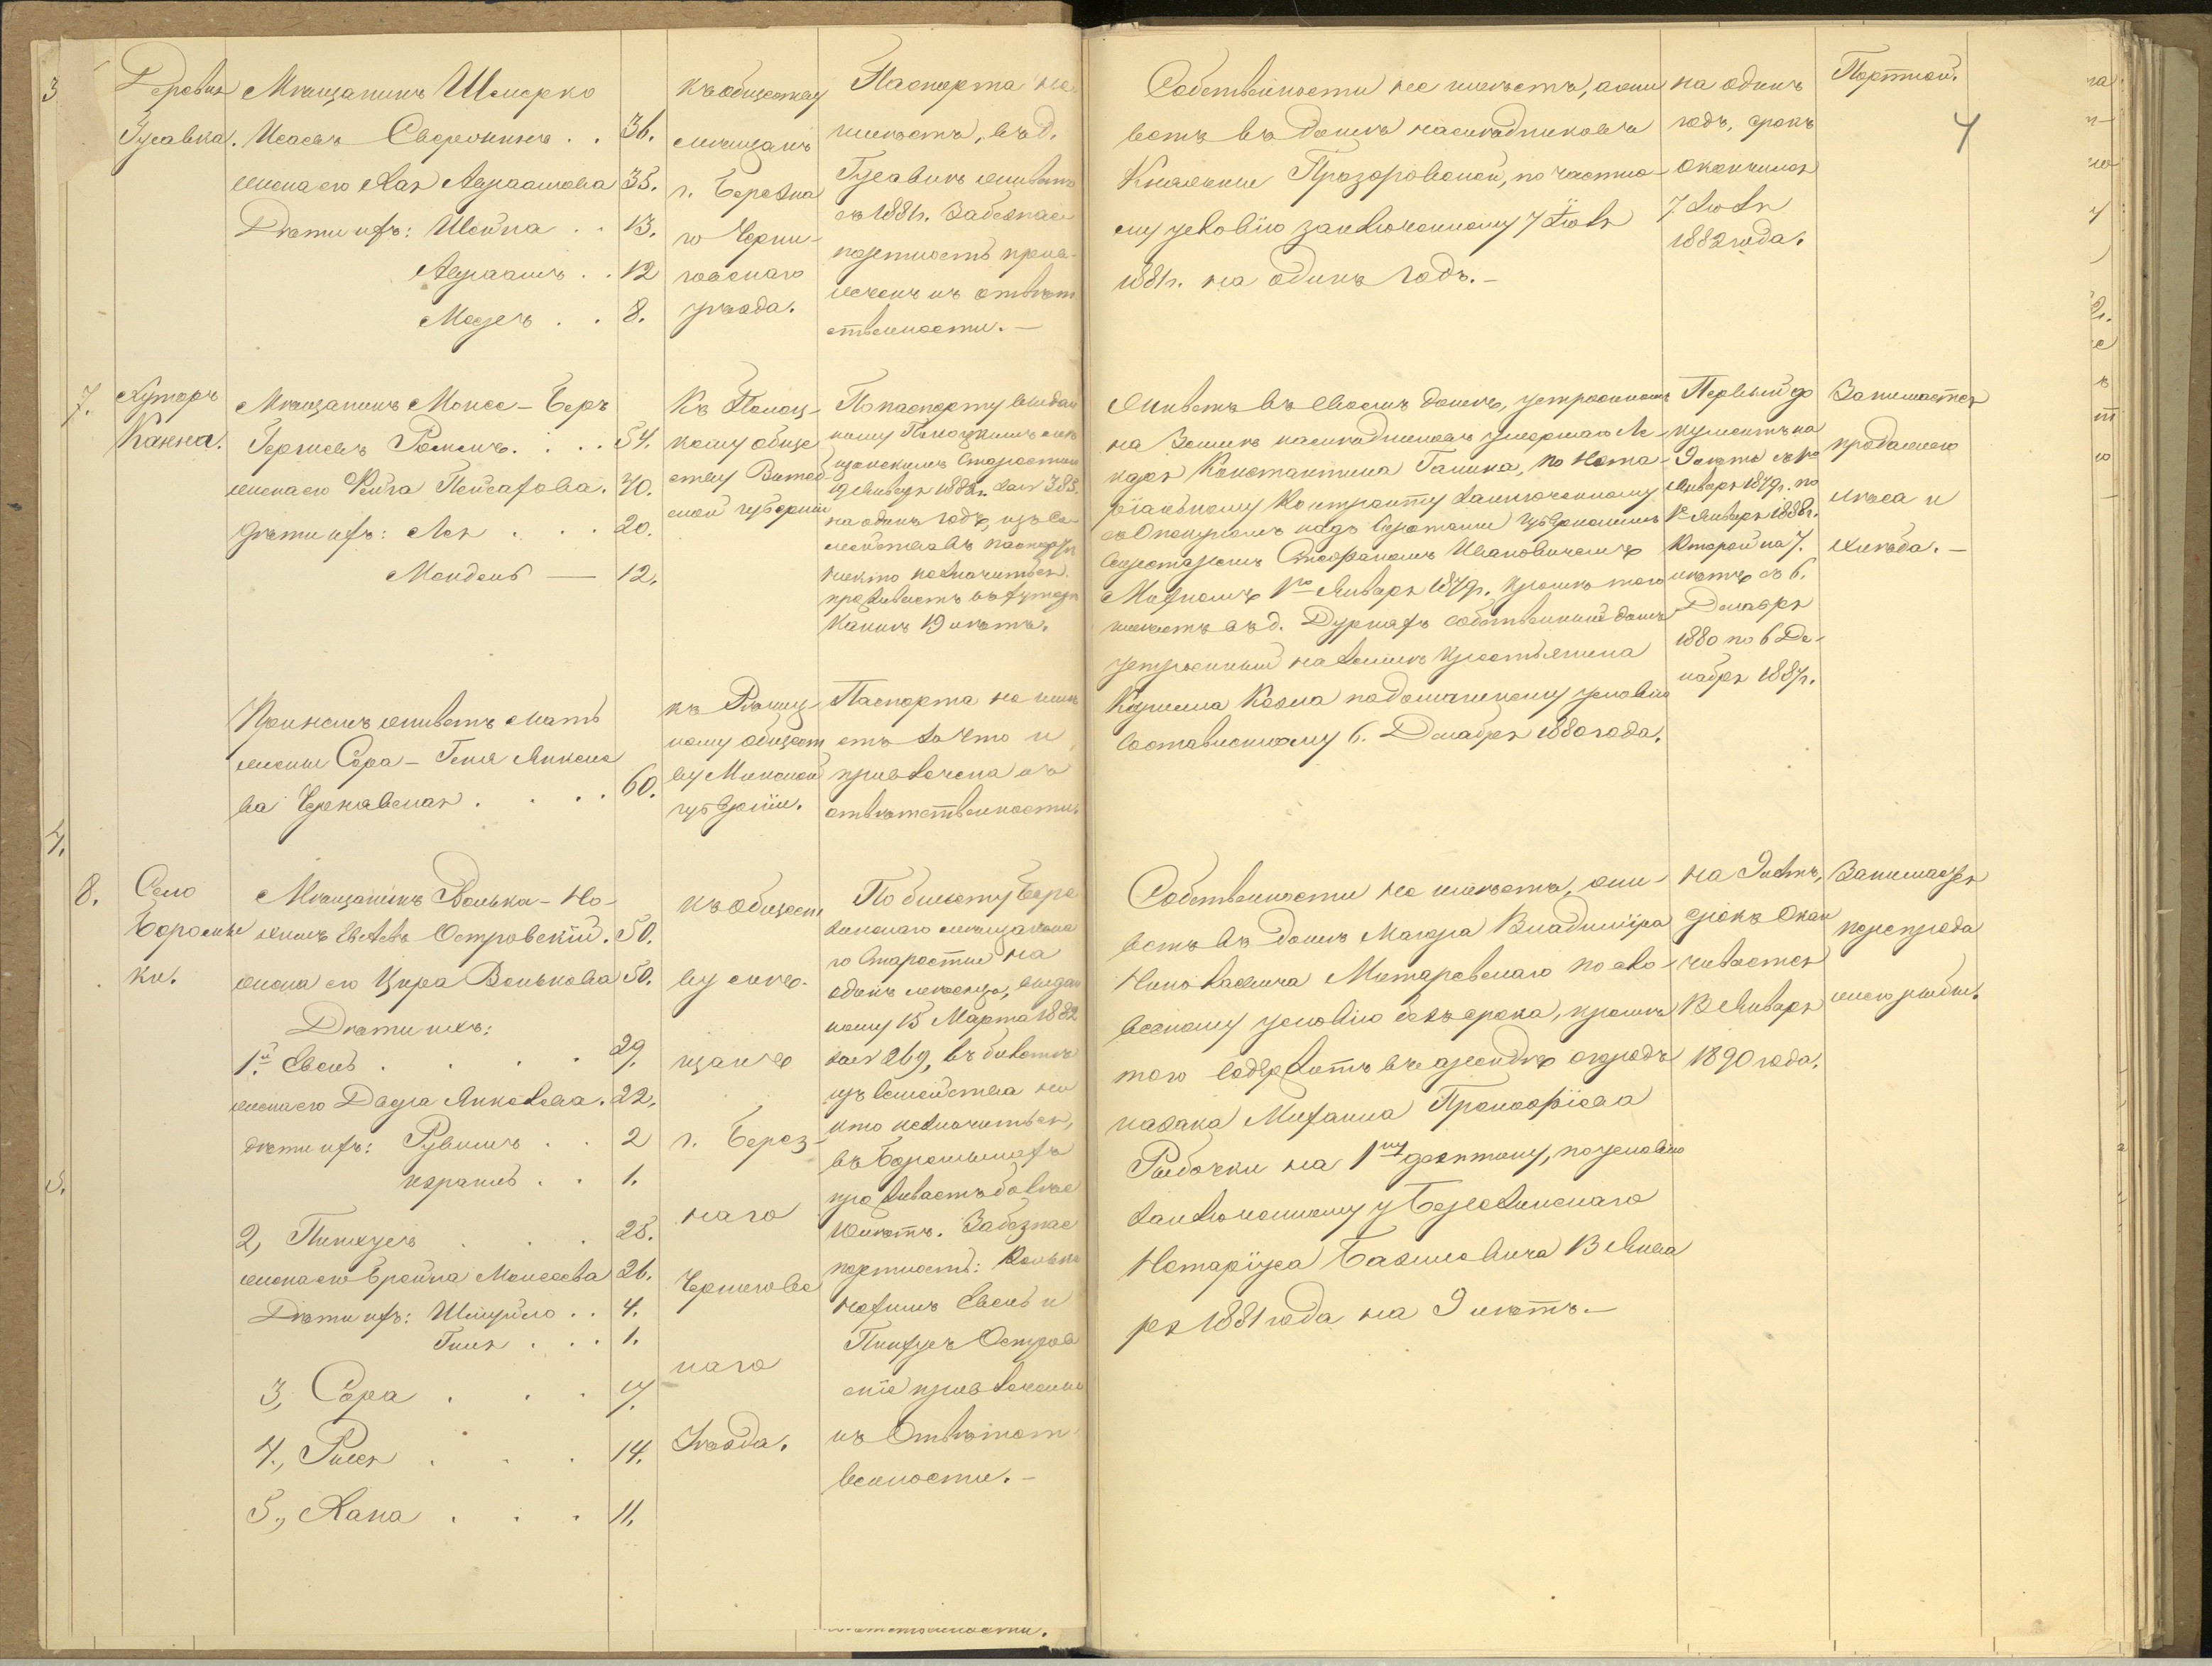 Деревня
Гусавка.
Мѣщанинъ Шмерко
Исаевъ . . 36.
жена его Хая Абраамова 35.
Дѣти ихъ: Шейна . . 13.
Абраамъ . . 12
Мовша . . 8.
къ обществу
мѣщанъ
г. Березна
го Черни-
говскаго
уѣзда.
Паспорта не
имѣетъ, въ д.
Гусавкѣ живетъ
съ 1881 г. За безпас
портность привле
ченъ къ отвѣт
ственности. —
Собственности не имѣетъ, а жи
ветъ въ домѣ наслѣдниковъ
Княгини Прозоровской, по частно-
му условію заключенному 7 Іюля
1881 г. на одинъ годъ. —
на одинъ
годъ, срокъ
окончился
7 Іюля
1882 года.
Портной.
4
7.
Хуторъ
Канна.
Мѣщанинъ Монсе-Беръ
. . . 54.
жена его Фейга Пейсахова. 40.
дѣти ихъ: Лея . . . 20.
Мендель — 12.
Къ Полоц-
кому обще
ству Витеб-
ской губерніи
По паспорту выдан
ному Полоцкимъ мѣ
щанскимъ Старостою
19 Января 1882 г. за № 385.
на одинъ годъ, изъ се
мейства въ паспортѣ
никто не значится.
проживаетъ въ хуторѣ
Каннѣ 19 лѣтъ.
Живетъ въ своемъ домѣ, устроенномъ
на землѣ наслѣдниковъ умершаго Ле-
каря Константина Галика, по Нота-
ріальному контракту заключенному
съ Опекуномъ надъ Сиротами Губернскимъ
Секретаремъ Стефаномъ Ивановичемъ
1го Января 1879 г. Кромѣ того
имѣетъ въ д. Дурняхъ собственный домъ
устроенный на землѣ крестьянина
Кирилла Козла по домашнему условію
составленному 6. Декабря 1880 года.
Первый до
кументъ на
9 лѣтъ съ 1го
Января 1879 г. по
1е Января 1888 г.
Второй на 7.
лѣтъ съ 6.
Декабря
1880 по 6 Де-
кабря 1887 г.
Занимается
продажею
лѣса и
хлѣба. —
При немъ живетъ мать
жены Сора-Геня Янкеле
ва Чернявская . . . . 60.
къ
кому общест
ву Минской
губерніи.
Паспорта не имѣ
етъ за что и
привлечена къ
отвѣтственности.
8.
Село
Боромы
ки.
Мѣщанинъ Волько-Но-
химъ Евелевъ Островскій. 50.
жена его Ципа Волькова 50.
Дѣти ихъ:
1й. Евсей . . . . 29.
жена его Двейра Янкелева. 22.
дѣти ихъ: Рувимъ . . 2
Израиль . . 1.
2, Пинхусъ . . . 28.
жена его Брейна Моисеева 26.
Дѣти ихъ: Шмуйло . . 4.
Гиля . . . 1.
3, Сора . . . 17.
4., Рися . . . 14.
5., Хана . . . 11.
къ общест
ву мѣ
щанъ
г. Берез-
наго
Черниговс
каго
Уѣзда.
По билету Бере
зинскаго мѣщанска
го Старосты на
одинъ мѣсяцъ, выдан
ному 15 Марта 1882
за № 269, въ билетѣ
изъ семейства ни
кто не значится,
въ Боромыкахъ
проживаетъ болѣе
10 лѣтъ. За безпас
портность: Волько
Нохимъ Евсей и
Пинхусъ Остров
скіе привлечены
къ Отвѣтст
венности. —
Собственности не имѣетъ, жи-
ветъ въ домѣ Маіора Владиміра
Николаевича по сло-
весному условію безъ срока, кромѣ
того содержитъ въ арендѣ огородъ
казака Михаила Прокофіева
Рыбочки на 1ну десятину, по условію
заключенному у Березинскаго
Нотаріуса 13 Янва
ря 1881 года на 9 лѣтъ. —
на 9 лѣтъ,
срокъ Окан
чивается
13 Января
1890 года.
Занимается
перепрода
жею рыбы.